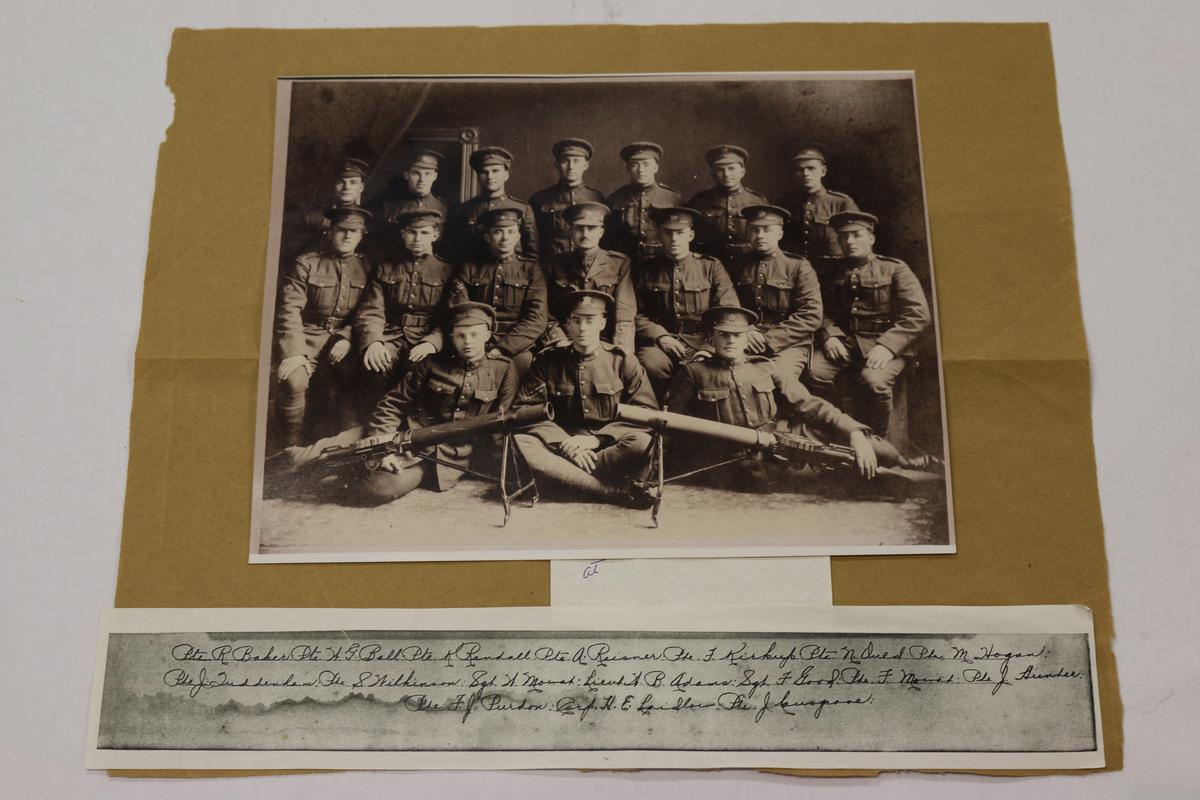 at
Pte R Baker. Pte W G Ball Pte K Randall Pte. A. Reisner. Pte. F. Kirkup Pte N Oued Pte. M Hogan:
Pte J. Tuddenham: Pte. S Wilkinson: Sgt. W. Mowat: Lieut W B. Adams: Sgt. F. Good, Pte. F Mowat: Pte J.
Pte. F J. Purdon: Corp. H. E Laidlaw: Pte. J